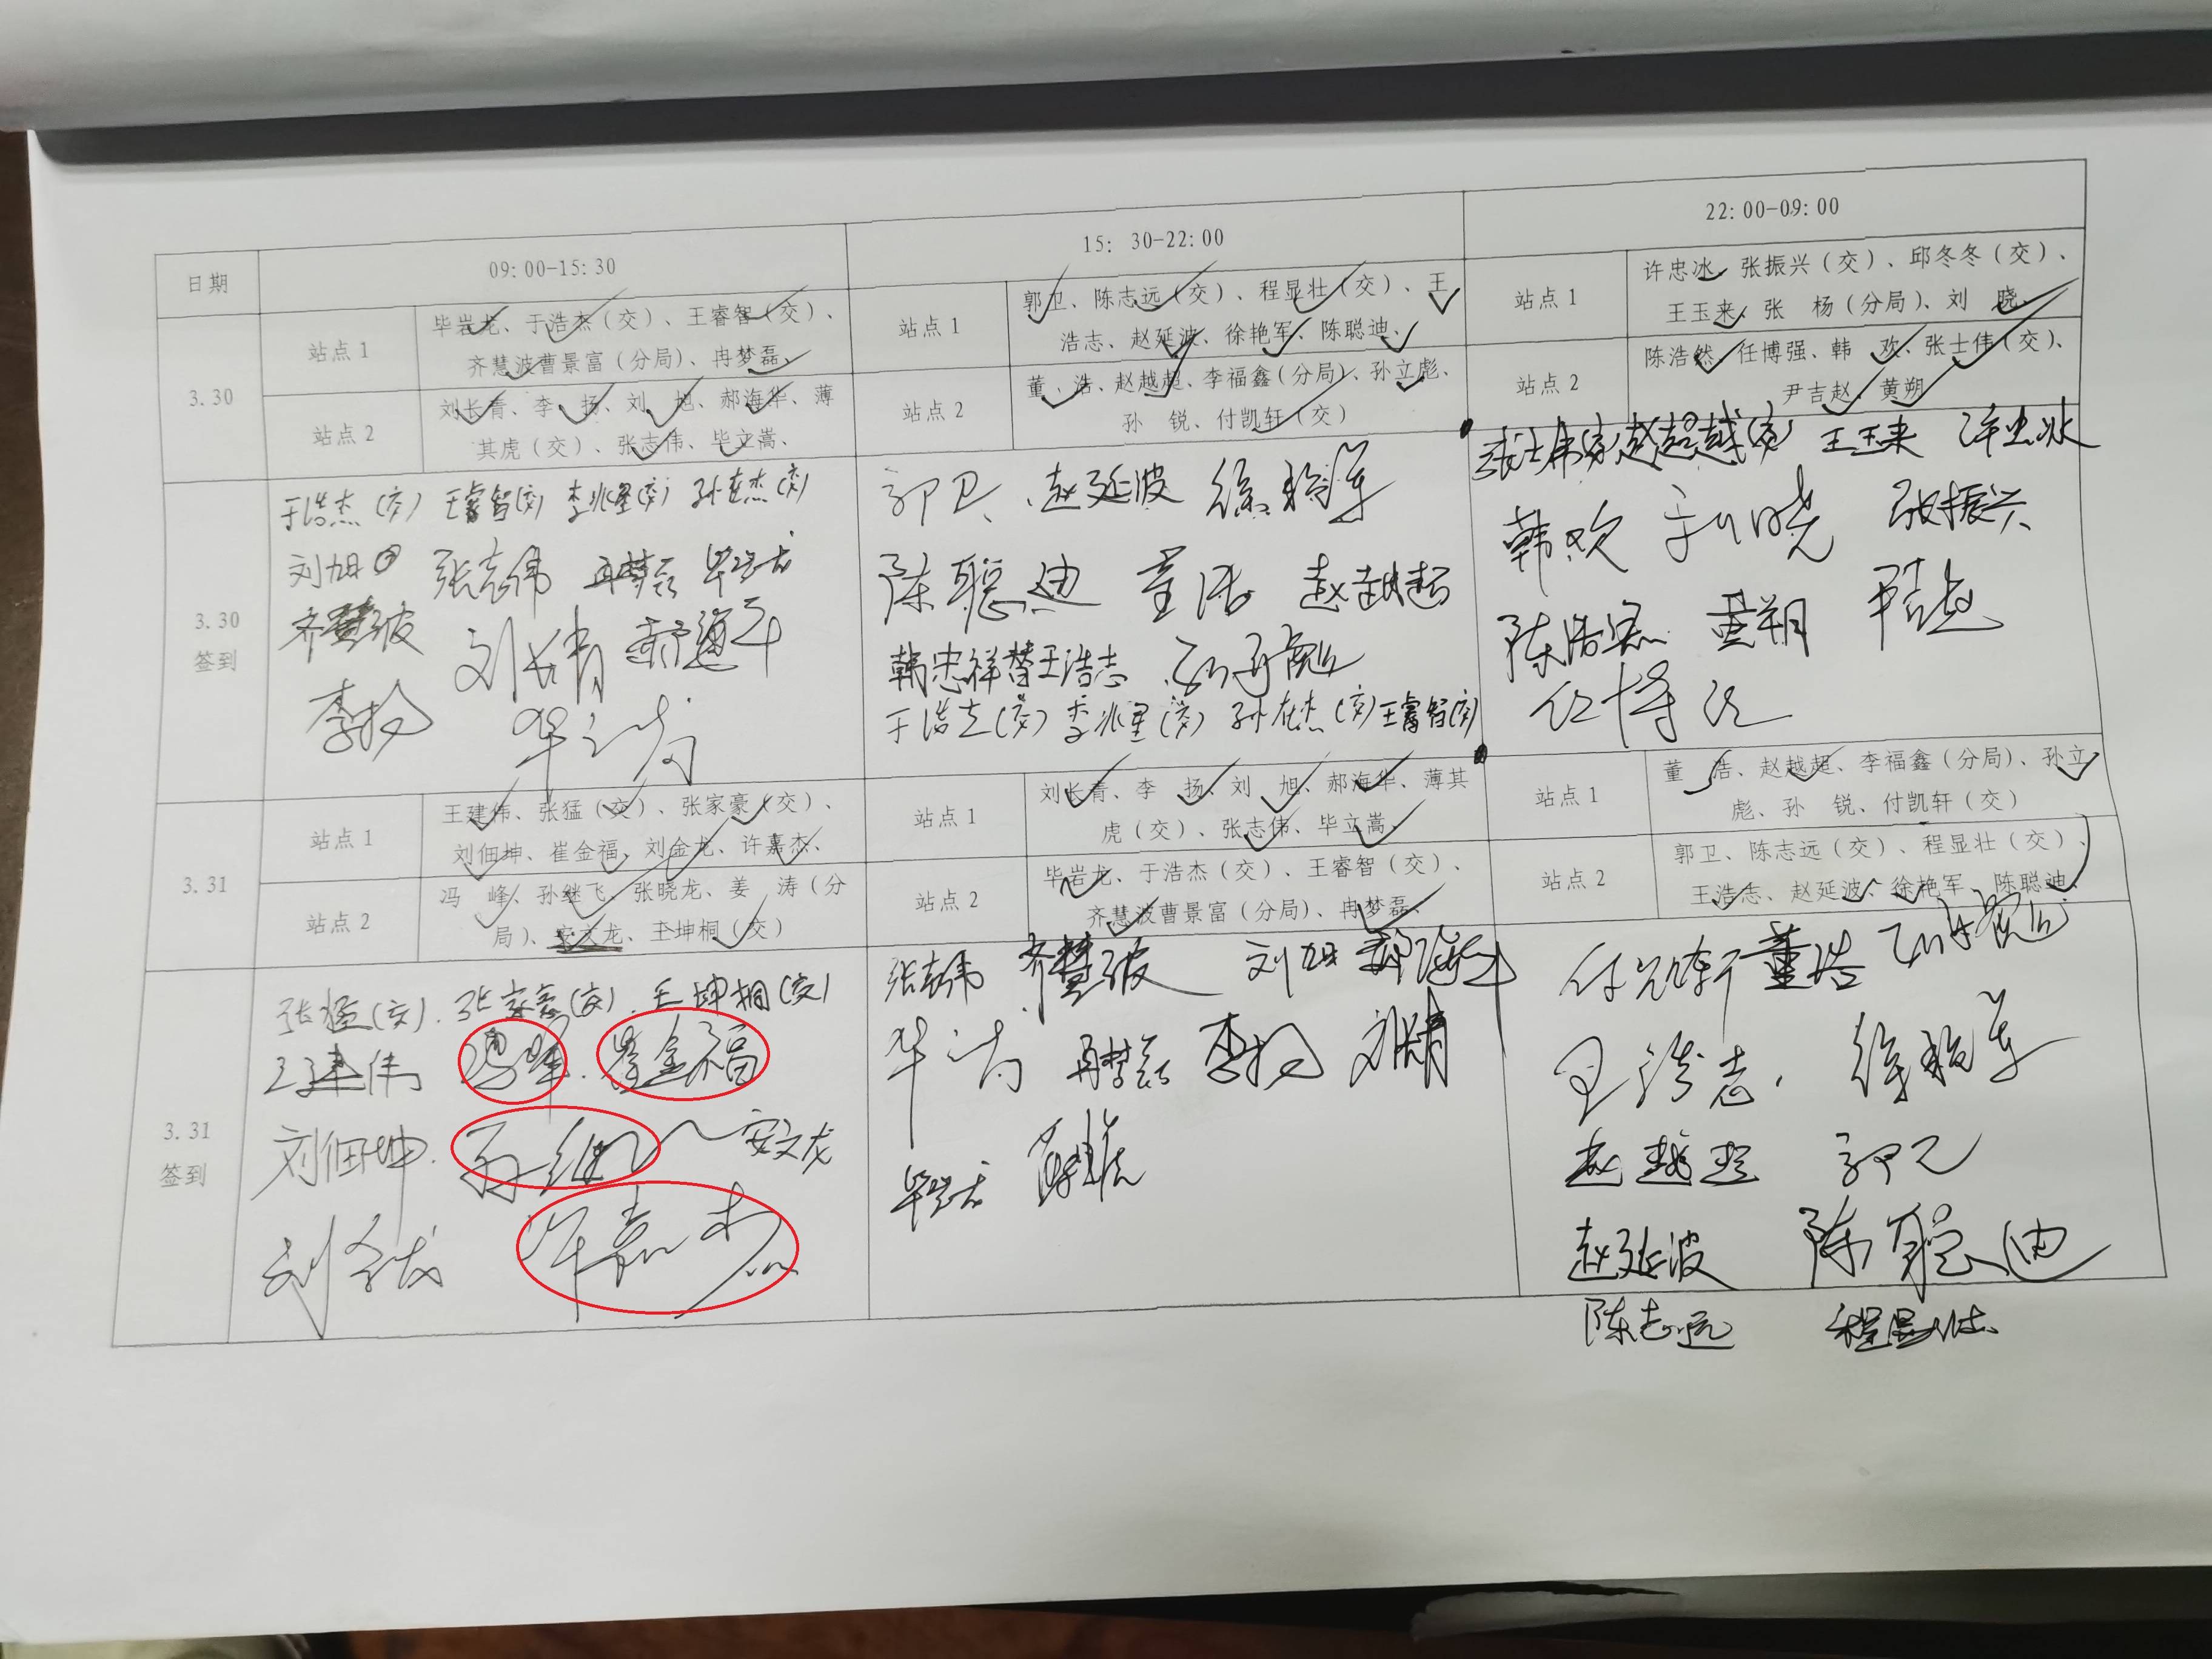 日期
09:00-15:30
15:30-22:00
22:00-09:00
3.30
站点1
毕岩龙、于浩杰（交）、王睿智（交）、
齐慧波曹景富（分局）、冉梦磊、
站点1
郭卫、陈志远（交）、程显壮（交）、王
浩志、赵延波、徐艳军、陈聪迪、
站点1
许忠冰、张振兴（交）、邱冬冬（交）、
王玉来、张 杨（分局）、刘 晓、
站点2
刘长青、李 扬、刘 旭、郝海华、薄
其虎（交）、张志伟、毕立嵩、
站点2
董 浩、赵越超、李福鑫（分局）、孙立彪、
孙 锐、付凯轩（交）
站点2
陈浩然、任博强、韩 欢、张士伟（交）、
尹吉赵、黄朔
3.30
签到
于浩杰（交） 王睿智（交） 李兆星（交） 孙在杰（交）
刘旭 张志伟 冉梦磊 毕岩龙
齐慧波 刘长青 郝海华
李扬
郭卫、赵延波 徐艳军
陈聪迪 董浩 赵越超
韩忠祥替王浩志 孙立彪
李兆星（交） 孙在杰（交） 王睿智（交）
王玉来 许忠冰
韩欢 刘晓 张振兴
陈浩然 黄朔 尹吉赵
任博强
3.31
站点1
王建伟、张猛（交）、张家豪（交）、
刘佃坤、崔金福、刘金龙、许嘉杰、
站点1
刘长青、李 扬、刘 旭、郝海华、薄其
虎（交）、张志伟、毕立嵩、
站点1
董 浩、赵越超、李福鑫（分局）、孙立
彪、孙 锐、付凯轩（交）
站点2
冯 峰、孙继飞、张晓龙、姜 涛（分
局）、安文龙、王坤桐（交）
站点2
毕岩龙、于浩杰（交）、王睿智（交）、
齐慧波曹景富（分局）、冉梦磊、
站点2
郭卫、陈志远（交）、程显壮（交）、
王浩志、赵延波、徐艳军、陈聪迪、
3.31
签到
张猛（交）.张家豪（交）.王坤桐（交）
王建伟 冯峰. 崔金福
刘佃坤. 孙继飞 安文龙
刘金龙 许嘉杰
张志伟 齐慧波 刘旭 郝海华
冉梦磊 李扬 刘长青
毕岩龙
付凯轩 董浩 孙立彪
王浩志. 徐艳军
赵越超 郭卫
赵延波 陈聪迪
陈志远 程显壮